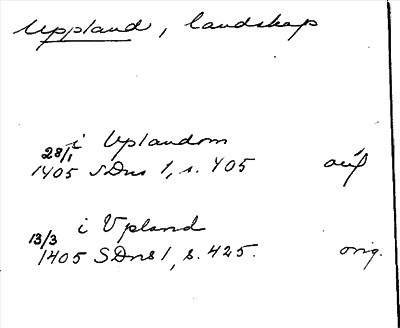 Uppland, landskap
i Uplandom
28/1 1405 SDns 1, s. 405 avf
i Upland
13/3 1405 SDns 1, s. 425. orig.